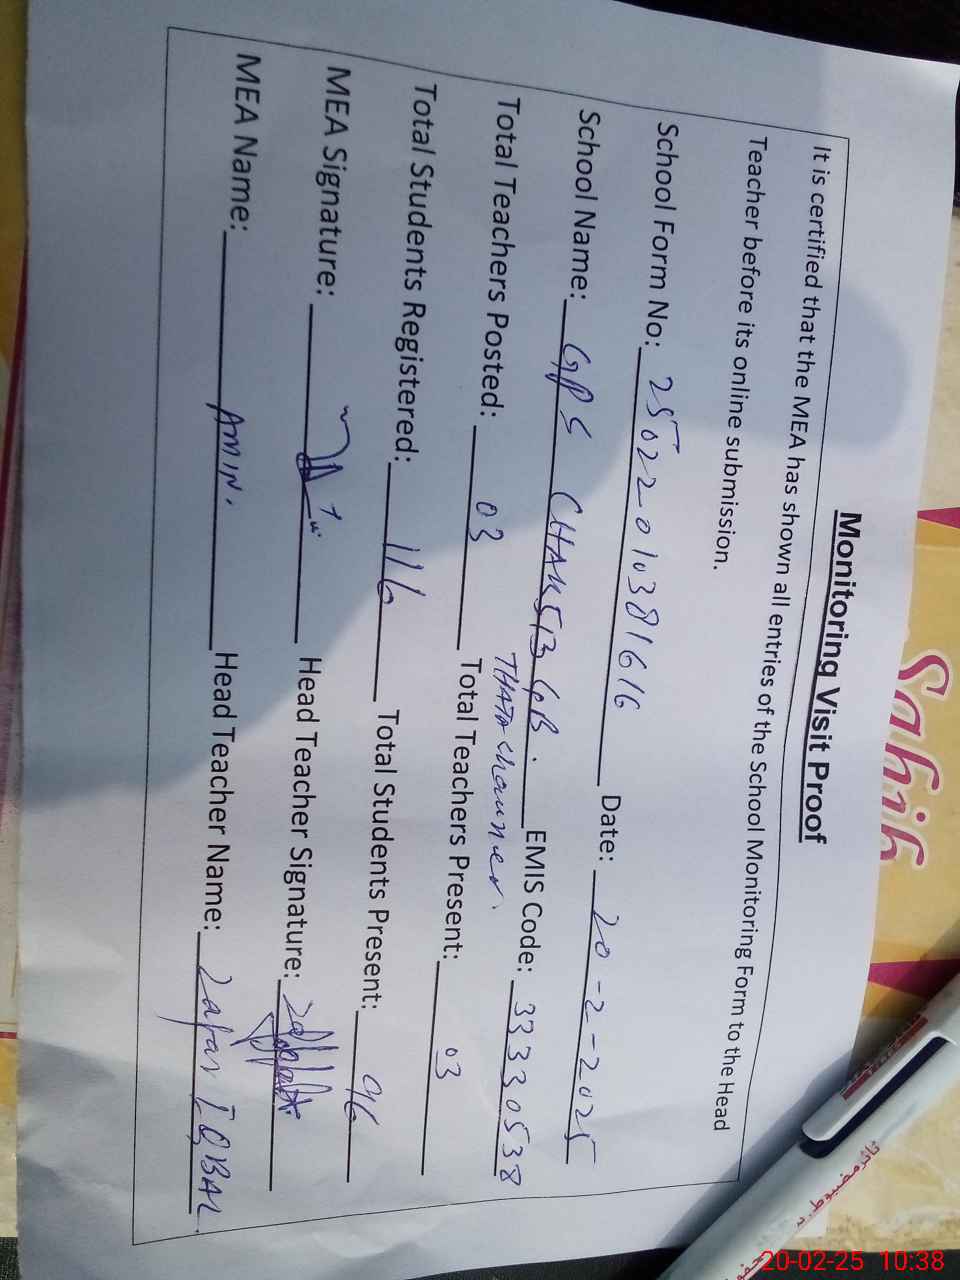 Sahib
Monitoring Visit Proof
It is certified that the MEA has shown all entries of the School Monitoring Form to the Head
Teacher before its online submission.
School Form No: 25022010381616 Date: 20-2-2025
School Name: GPS CHAK 513 GB. EMIS Code: 33330538
Total Teachers Posted: 03 Total Teachers Present: 03
Total Students Registered: 116 Total Students Present: 96
MEA Signature: Head Teacher Signature:
MEA Name: AMIN. Head Teacher Name: Zafar IQBAL
20-02-25 10:38